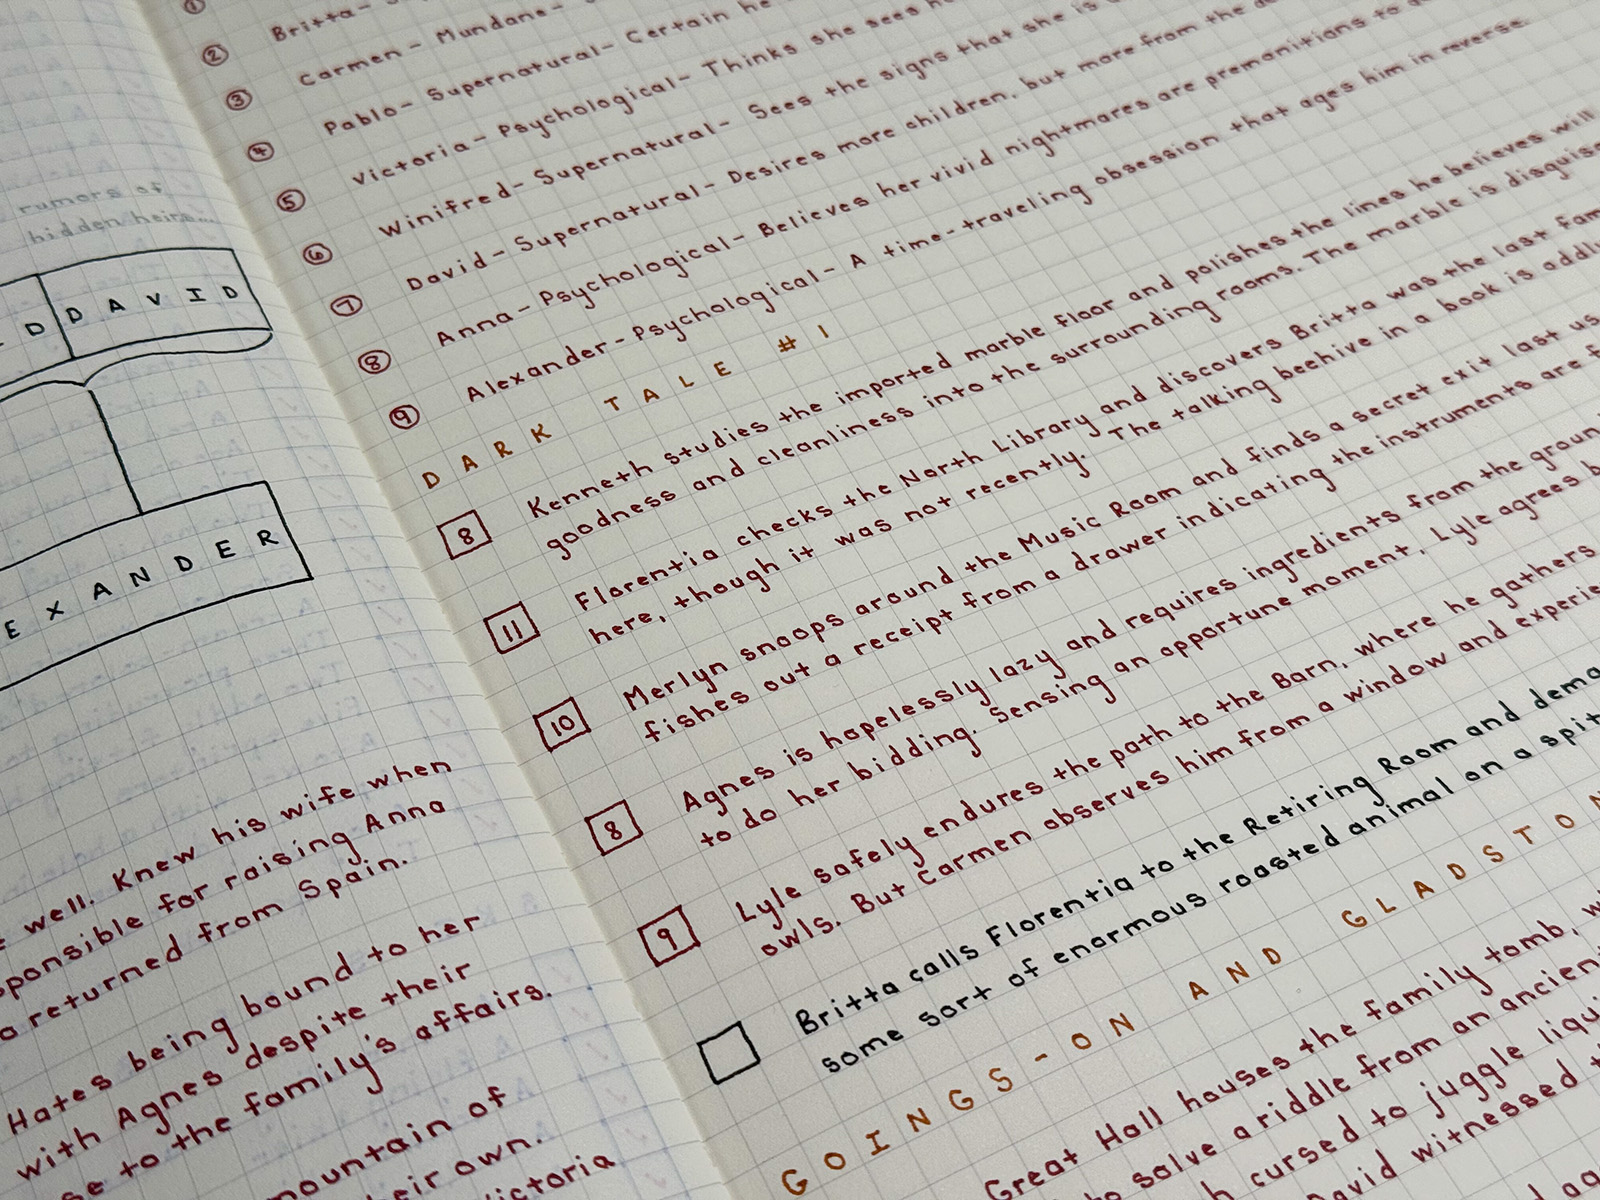 rumors of
hidden heirs...
D DAVID
EXANDER
well. Knew his wife when
sponsible for raising Anna
returned from Spain.
Hates being bound to her
with Agnes despite their
se to the family's affairs.
mountain of
heir own.
Victoria
① Britta-
② Carmen- Mundane-
③ Pablo- Supernatural- Certain he
④ Victoria- Psychological- Thinks she sees
⑤ Winifred- Supernatural- Sees the signs that she is
⑥ David- Supernatural- Desires more children, but more from the
⑦ Anna- Psychological- Believes her vivid nightmares are premonitions to
⑧ Alexander- Psychological- A time-traveling obsession that ages him in reverse.
⑨
DARK TALE #1
8 Kenneth studies the imported marble floor and polishes the lines he believes will
goodness and cleanliness into the surrounding rooms. The marble is disguise
11 Florentia checks the North Library and discovers Britta was the last fam
here, though it was not recently. The talking beehive in a book is oddly
10 Merlyn snoops around the Music Room and finds a secret exit last us
fishes out a receipt from a drawer indicating the instruments are f
8 Agnes is hopelessly lazy and requires ingredients from the groun
to do her bidding. Sensing an opportune moment, Lyle agrees b
9 Lyle safely endures the path to the Barn, where he gathers
owls. But Carmen observes him from a window and experie
Britta calls Florentia to the Retiring Room and dema
some sort of enormous roasted animal on a spit
GOINGS-ON AND GLADSTON
Great Hall houses the family tomb, w
to solve a riddle from an ancient
h cursed to juggle liqui
avid witnessed t